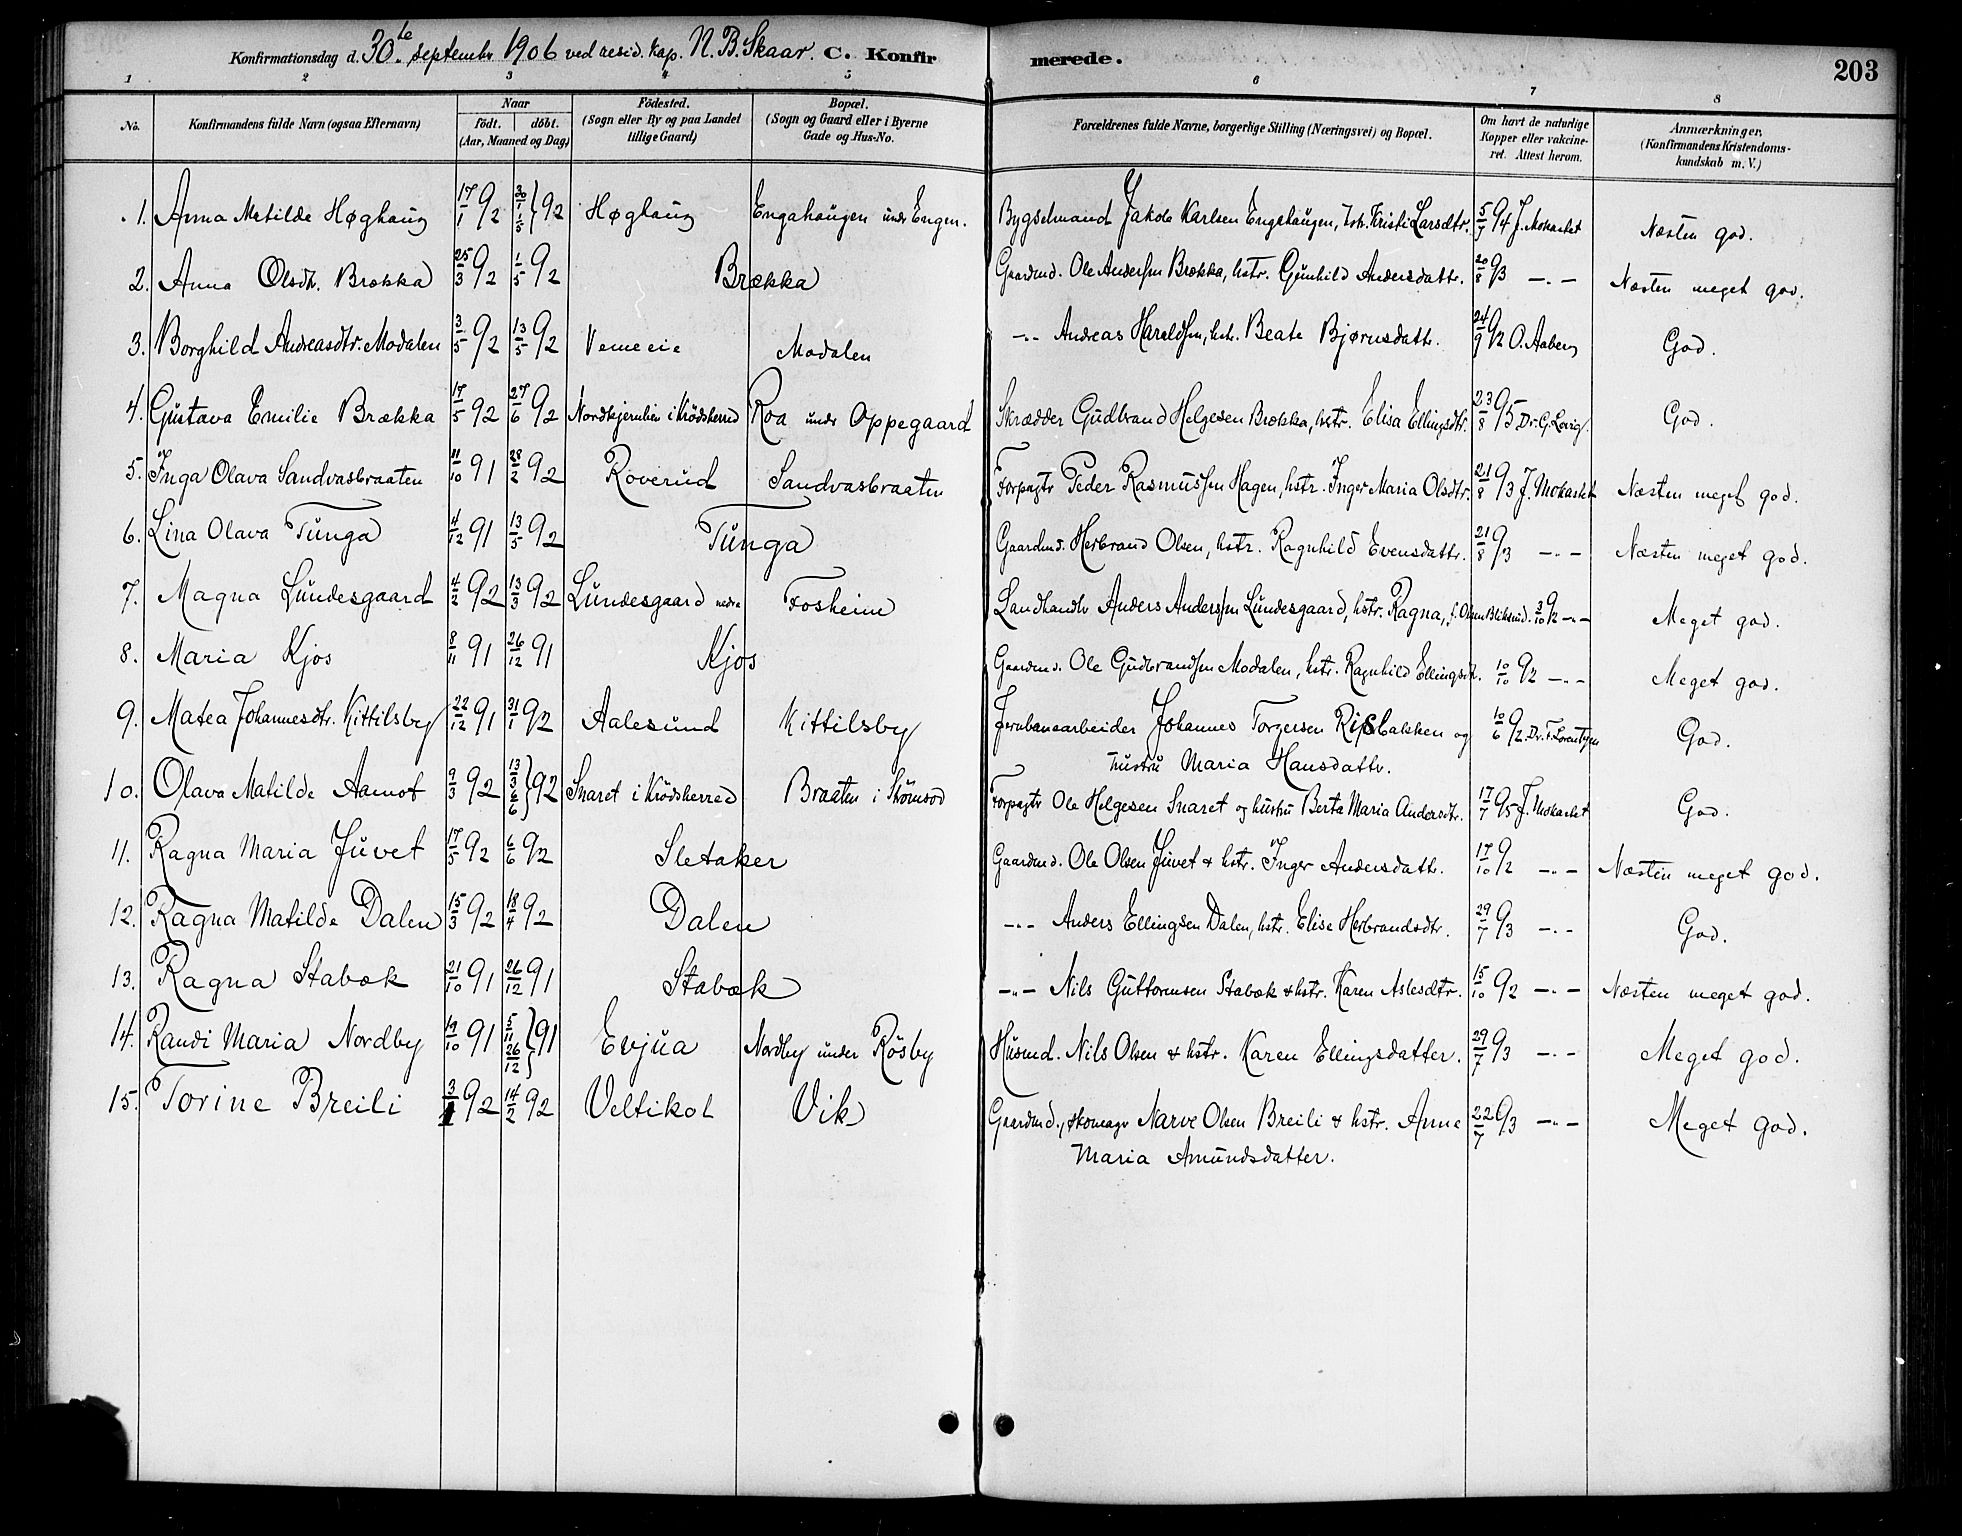 Konfirmationsdag d. 30te september 1906 ved resid. kap. N. B. Skaar. C. Konfirmerede. 203
1 2 3 4 5 6 7 8
No. Konfirmandens fulde Navn (ogsaa Efternavn) Naar födt. döbt. (Aar, Maaned og Dag) Födested. (Sogn eller By og paa Landet tillige Gaard) Bopæl. (Sogn og Gaard eller i Byerne Gade og Hus-No. Forældrenes fulde Navne, borgerlige Stilling (Næringsvei) og Bopæl. Om havt de naturlige Kopper eller vakcineret. Attest herom. Anmærkninger. (Konfirmandens Kristendomskundskab m. V.)
1. Anna Matilde Høghaug 17/1 92 30/1 1/5 } 92 Høghaug Engahaugen under Engen. Bygselmand Jakob Karlsen Engahaugen, hstr. Kristi Larsdtr. 5/7 94 J. Mokastet Næsten god.
2. Anna Olsdtr. Brækka 25/3 92 1/5 92 Brækka Gaardmd. Ole Anderssen Brækka, hstr. Gunhild Andersdattr. 20/8 93 -"- Næsten meget god.
3. Borghild Andreasdtr. Modalen 3/5 92 13/5 92 Vemeeie Modalen -"- Andreas Haraldsen, hstr. Beate Bjørnsdattr. 24/9 92 O. Aaberg God.
4. Gustava Emilie Brækka 17/5 92 27/6 92 Nordkjernlien i Krödsherred Roa under Oppegaard Skrædder Gudbrand Helgesen Brækka, hstr. Elisa Ellingsdtr. 23/8 95 Dr. G. Lovig. God.
5. Inga Olava Sandvasbraaten 11/10 91 28/2 92 Roverud Sandvasbraaten Forpagtr Peder Rasmussen Hagen, hstr. Inger Maria Olsdtr. 21/8 93 J. Mokastet Næsten meget god.
6. Lina Olava Tunga 4/12 91 13/5 92 Tunga Gaardmd. Herbrand Olsen, hstr. Ragnhild Evensdattr. 21/8 93 -"- Næsten meget god.
7. Magna Lundesgaard 4/2 92 13/3 92 Lundesgaard nedre Fosheim Landhandlr Anders Anderssen Lundesgaard, hstr. Ragna, f. Olsen Bliksrud. 3/10 92 -"- Meget god.
8. Maria Kjos 8/11 91 26/12 91 Kjos Gaardmd. Ole Gudbrandsen Modalen, hstr. Ragnhild Ellingsdt. 10/10 92 -"- Meget god.
9. Matea Johannesdtr. Kittilsby 22/12 91 31/1 92 Aalesund Kittilsby Jernbanearbeider Johannes Torgersen Risbakken og 10/6 92. Dr. F. Lorentzen God.
hustru Maria Hansdattr.
10. Olava Matilde Aamot 9/3 92 13/3 6/6 } 92 Snaret i Krödsherred Braaten i Strømsod Forpagtr Ole Helgesen Snaret og hustru Berta Maria Andersdtr. 17/7 95 J. Mokastet God.
11. Ragna Maria Juvet 17/5 92 6/6 92 Sletaker Gaardmd. Ole Olsen Juvet & hstr. Inger Andersdattr. 17/10 92 -"- Næsten meget god.
12. Ragna Matilde Dalen 15/3 92 18/4 92 Dalen -"- Anders Ellingsen Dalen, hstr. Elise Herbrandsdtr. 29/7 93 -"- God.
13. Ragna Stabæk 21/10 91 26/12 91 Stabæk -"- Nils Guttormsen Stabæk & hstr. Karen Aslesdtr. 15/10 92 -"- Næsten meget god.
14. Randi Maria Nordby 19/10 91 5/11 26/12 } 91 Evjua Nordby under Rösby Husmd. Nils Olsen & hstr. Karen Ellingsdatter. 29/7 93 -"- Meget god.
15. Torine Breili 3/1 92 14/2 92 Veltikol Vik Gaardmd., skomagr Narve Olsen Breili & hstr. Anne 22/7 93 -"- Meget god.
Maria Amundsdatter.